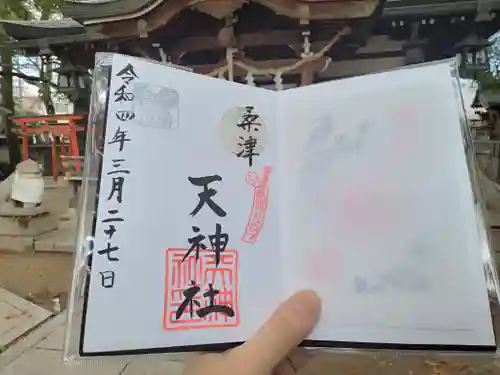 令和四年三月二十七日
桑津
天神社